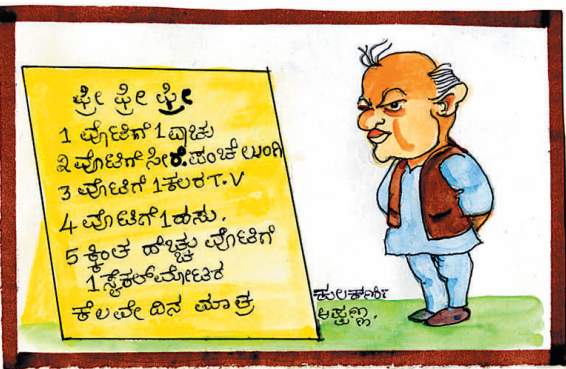 ಫ್ರೀ ಫ್ರೀ ಫ್ರೀ
1 ವೋಟಿಗೆ 1 ವಾಚು
೩ ವೋಟಿಗೆ ಸೀರೆ. ಪಂಚೆ ಲುಂಗಿ
3 ವೋಟಿಗೆ 1 ಕಲರ T.V
4 ವೋಟಿಗೆ 1 ಹಸು.
5 ಕ್ಕಿಂತ ಹೆಚ್ಚು ವೋಟಿಗೆ
1 ಸೈಕಲ್ ಮೋಟರ
ಕೆಲವೇ ದಿನ ಮಾತ್ರ
ಕುಲಕರ್ಣಿ